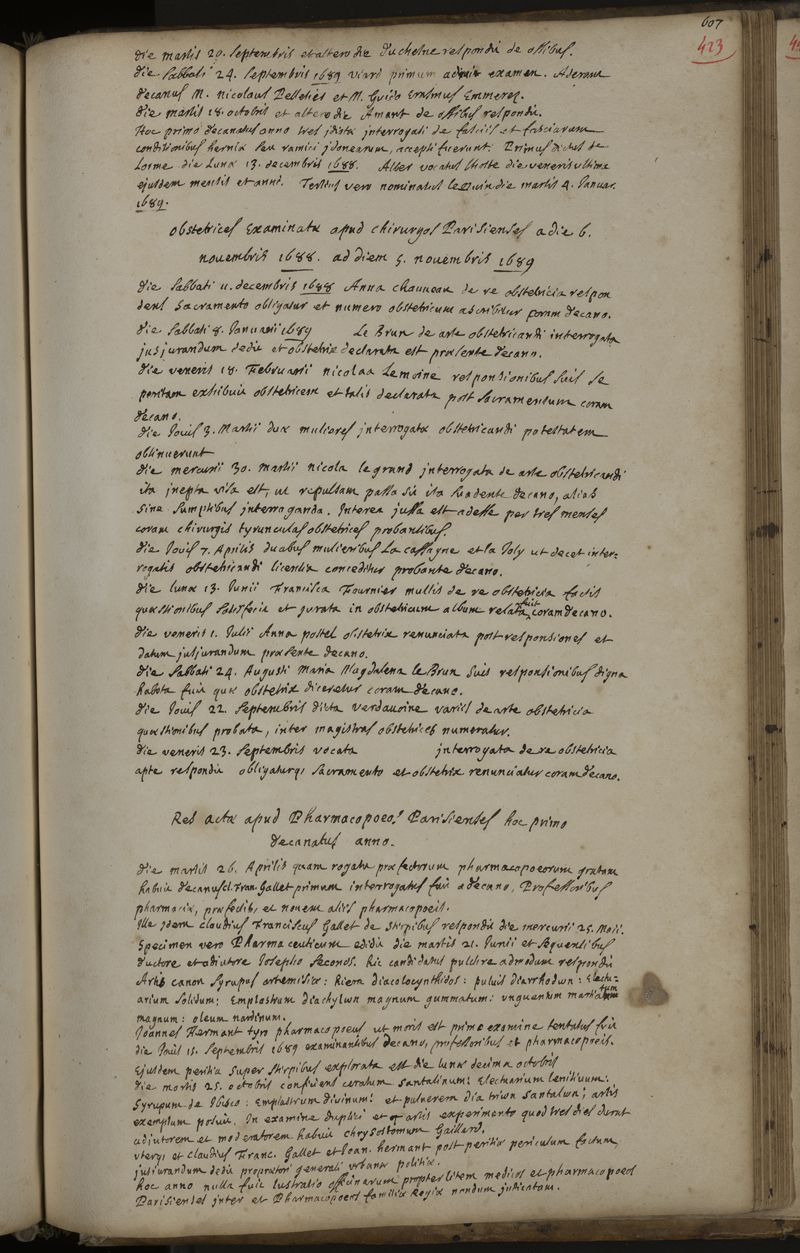 607
423
die martis 20. septembris et altero die Duchesne respondit de ossibus.
die sabbati 24. septembris 1689 viard primum examen. Aderant
decanus M. nicolaus Pelletier et M. Guido Erasmus Emmerez.
die martis 18. octobris et altero die Amant de ossibus respondit.
Hoc primo decanatus anno tres interrogati de fasciis et fasciarum
conditionibus herniæ seu ramici idonearum, accepti fuerunt. Primus dictus de
Lorme die Lunæ 13. decembris 1688. Alter vocatus Lhoste die veneris ultima
ejusdem mensis et anni. Tertius vero nominatus die martis 4. Januar.
1689.
obstetrices Examinatæ apud chirurgos Parisienses a die 6.
novembris 1688. ad diem 5. novembris 1689
die sabbati 11. decembris 1688 Anna chauveau de re obstetricia respon
dens sacramento obligatur et numero obstetricum adscribitur coram decano.
die sabbati 8. Januarii 1689 Le Brun de arte obstetricandi interrogata
jusjurandum dedit et obstetrix declarata est præsente decano.
die veneris 18. Februarii nicolaa Lemoine responsionibus suis se
peritam exhibuit obstetricem et talis declarata post sacramentum coram
decano.
die Jovis 3. Martii duæ mulieres interrogatæ obstetricandi potestatem
obtinuerunt
die mercurii 30. martii nicola le grand interrogata de arte obstetricandi
ita inepta visa est, ut repulsam passa sit ita suadente decano, alias
sine sumptibus interroganda. Interea jussa est adesse per tres menses
coram chirurgis tyrunculas obstetrices probantibus.
die Jovis 7. Aprilis duabus mulieribus La cassagne et la Joly ut decet inter-
rogatis obstetricandi licentia conceditur probante decano.
die lunæ 13. Junii Francisca Fournier multis de re obstetricia factis
quæstionibus satisfecit et jurata in obstetricum album relata fuit coram decano.
die veneris 1. Julii Anna postel obstetrix renunciata post responsiones et
datum jusjurandum præsente decano.
die sabbati 24. Augusti Maria Magdalena le Brun suis responsionibus digna
habita fuit quæ obstetrix diceretur coram decano.
die Jovis 22. septembris dicta verdavoine variis de arte obstetricia
quæstionibus probata, inter magistras obstetrices numeratur.
die veneris 23. septembris vocata interrogata de re obstetricia
apte respondit obligaturq; sacramento et obstetrix renunciatur coram decano.
Res actæ apud Pharmacopoeos Parisienses hoc primo
decanatus anno.
die martis 26. Aprilis quam rogatu præfectorum pharmacopoeorum gratam
habuit decanus cl. Fran. Gallet primum interrogatus fuit a decano, Professoribus
pharmaciæ, præfectis, et novem aliis pharmacopoeis.
Ille idem claudius Franciscus Gallet de stirpibus respondit die mercurii 25. Maii.
Specimen vero Pharmaceuticum edidit die martis 21. Junii et sequentibus
ductore et adiutore Josepho Seconds. Hic candidatus pulchre admodum respondit
Artis canon syrupus artemisiæ: Hiera diacolocynthidos: pulvis diarrhodwn: Electu-
arium solidum: Emplastrum diachylwn magnum gummatum: unguentum martiatum
magnum: oleum nardinum.
Joannes Hermant tyro pharmacopoeus ut moris est primo examine tentatus fuit
die Jovis 15. septembris 1689 examinantibus decano, professoribus et pharmacopoeis.
Ejusdem peritia super stirpibus explorata est die lunæ decima octobris
die martis 25. octobris conficiens ceratum santalinum: Electuarium lenitivum:
syrupum de Ibisco: Emplastrum divinum: et pulverem dia triwn santalwn; artis
exemplum posuit. In examine duplici et artis experimento quod tres dies durat
adjutorem et moderatorem habuit chrysostomum Gaillard.
uterq; et claudius Franc. Gallet et Joan. hermant post peritiæ periculum factum,
jusjurandum dedit proprætori generali urbanæ politiæ.
hoc anno nulla fuit lustratio officinarum propter litem medicos et pharmacopoeos
Parisienses inter et Pharmacopoeos familiæ Regiæ nondum judicatam.